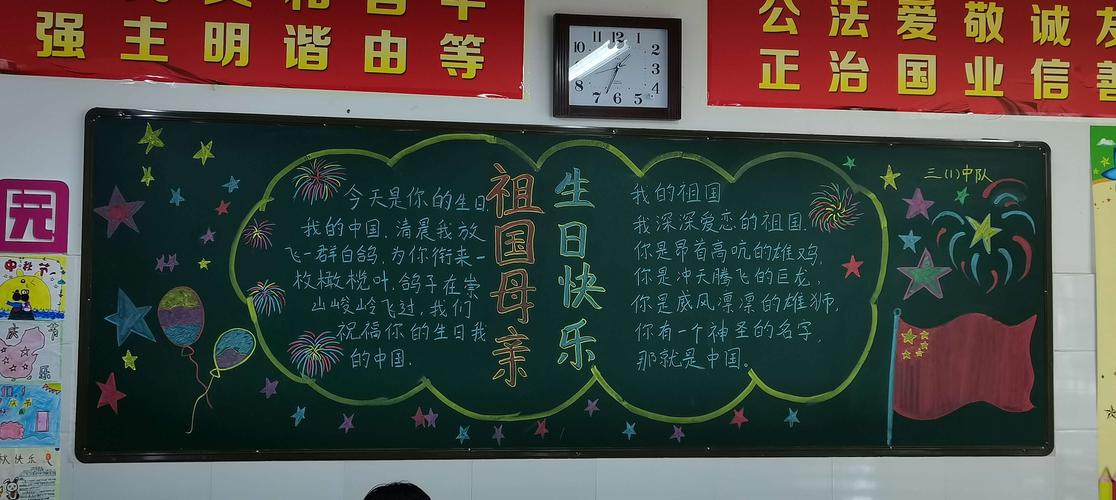 强主明谐由等
公法爱敬诚友
正治国业信善
10 11 12 1 2
9 3
8 4
7 6 5
园
中秋节
三(1)中队
祖国母亲
生日快乐
今天是你的生日,
我的中国,清晨我放
飞一群白鸽,为你衔来一
枚橄榄叶.鸽子在崇
山峻岭飞过,我们
祝福你的生日我
的中国.
我的祖国
我深深爱恋的祖国.
你是昂首高吭的雄鸡,
你是冲天腾飞的巨龙,
你是威风凛凛的雄狮,
你有一个神圣的名字,
那就是中国。